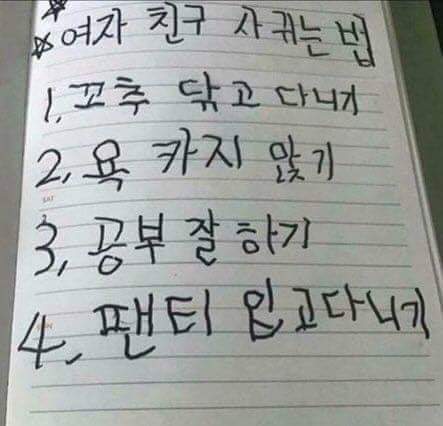 ☆☆여자 친구 사귀는 법
1. 꼬추 닦고 다니기
2. 욕 카지 않기
3. 공부 잘 하기
4. 팬티 입고다니기
SAT